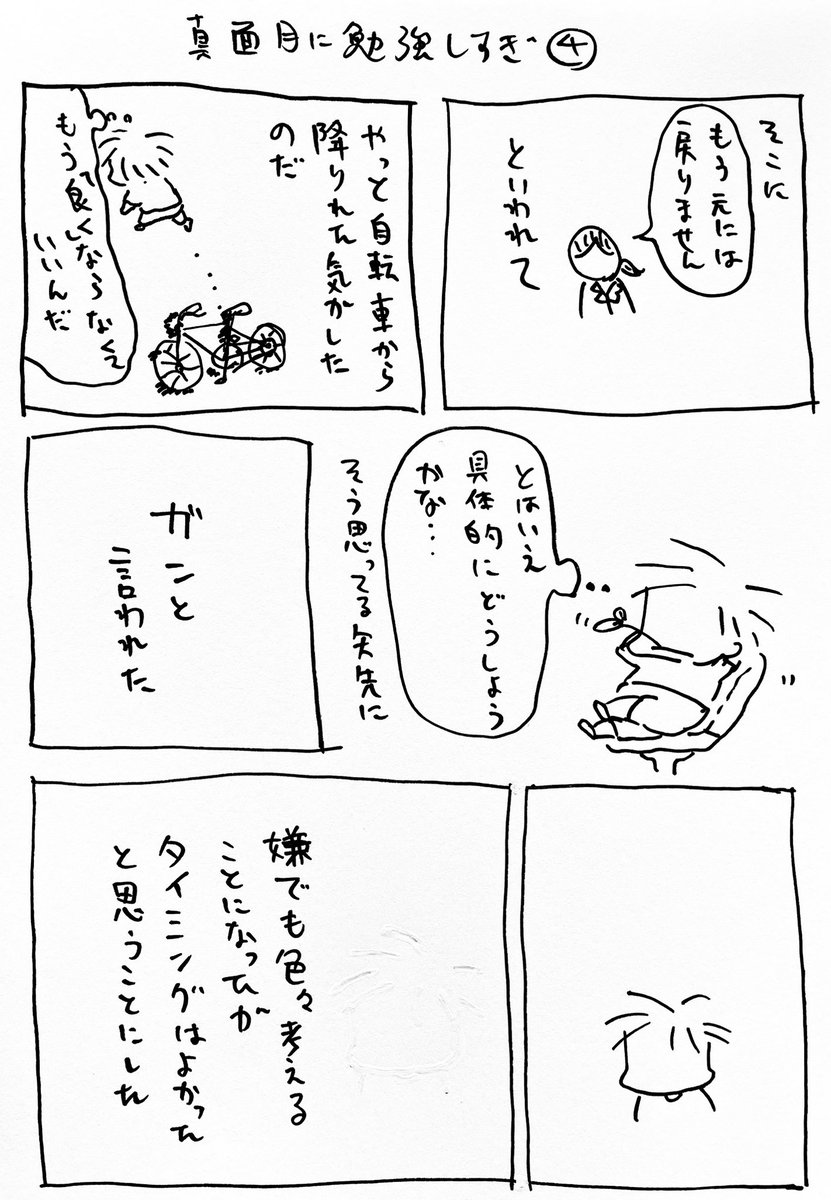 真面目に勉強しすぎ④
そこに
もう元には
戻りません
といわれて
やっと自転車から
降りれた気がした
のだ
もう良くならなくて
いいんだ
とはいえ
具体的にどうしよう
かな…
そう思ってる矢先に
ガンと
言われた
嫌でも色々考える
ことになったが
タイミングはよかった
と思うことにした